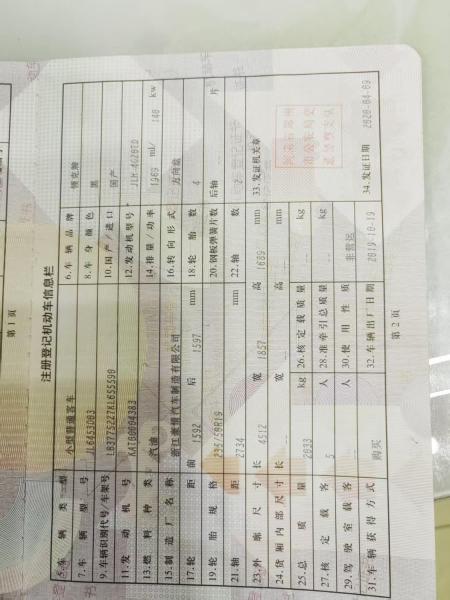 第1页
注册登记机动车信息栏
5.车辆类型 小型普通客车 6.车辆品牌 领克牌
7.车辆型号 JL6453D83 8.车身颜色 黑
9.车辆识别代号/车架号 10.国产/进口 国产
11.发动机号 12.发动机型号 JLH-4G20TD
13.燃料种类 汽油 14.排量/功率 1969 ml/ 140 kw
15.制造厂名称 浙江豪情汽车制造有限公司 16.转向形式 方向盘
17.轮距 前 1592 后 1597 mm 18.轮胎数 4
19.轮胎规格 235/50R19 20.钢板弹簧片数 后轴 片
21.轴距 2734 mm 22.轴数 2
23.外廓尺寸 长 4512 宽 1857 高 1689 mm 33.发证机关章
24.货厢内部尺寸 长 宽 高 mm
25.总质量 2033 kg 26.核定载质量 kg
27.核定载客 5 人 28.准牵引总质量 kg
29.驾驶室载客 人 30.使用性质 非营运
31.车辆获得方式 购买 32.车辆出厂日期 2019-10-19 34.发证日期 2020-04-09
第2页